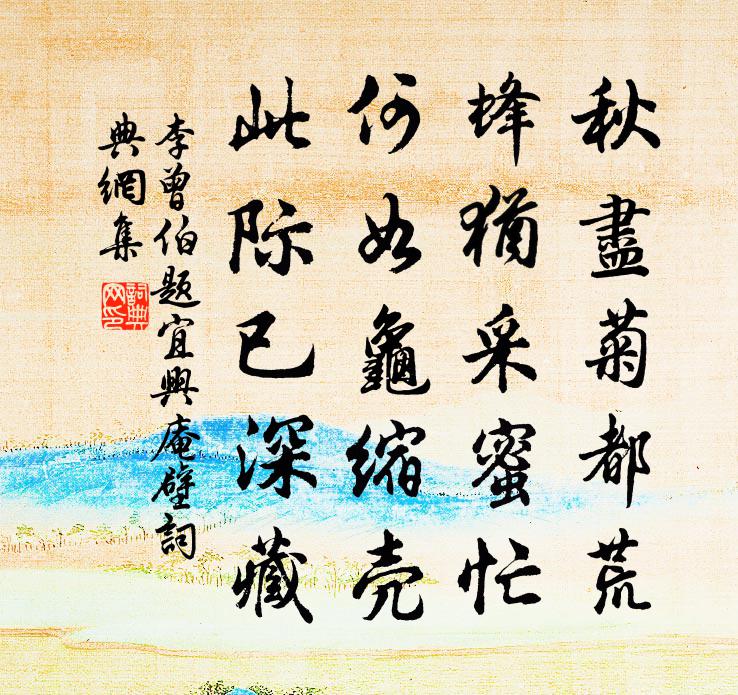 秋盡菊都荒
蜂猶采蜜忙
何如龜縮壳
此际已深藏
李曾伯題宜興庵壁詞
典網集
詞典
网印